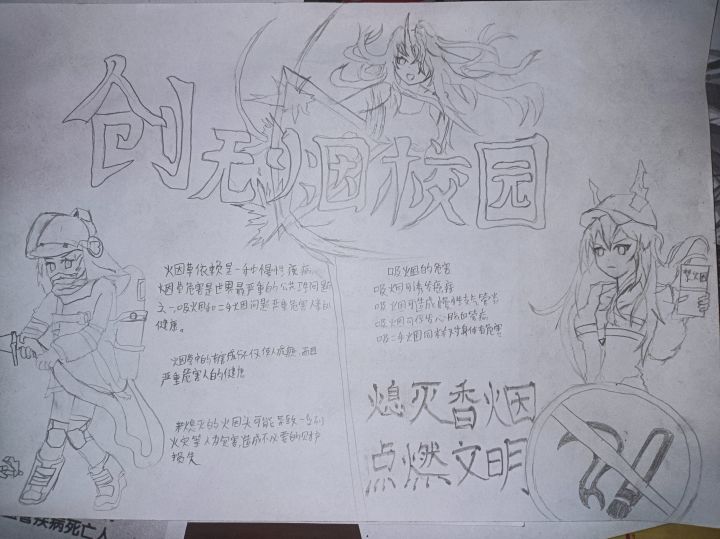 创无烟校园
烟草依赖是一种慢性疾病,
烟草危害是世界最严重的公共卫生问题
之一,吸烟和二手烟问题严重危害人类的
健康。
烟草中的有害成分不仅使人成瘾,而且
严重危害人的健康
未熄灭的火烟头可能导致
火灾等人为危害,造成不必要的财产
损失
吸烟的危害
吸烟可诱发癌症
吸烟可造成慢性支气管炎
吸烟可作发心脑血管病
吸二手烟同样对身体有危害
禁烟
熄灭香烟
点燃文明
疾病死亡人